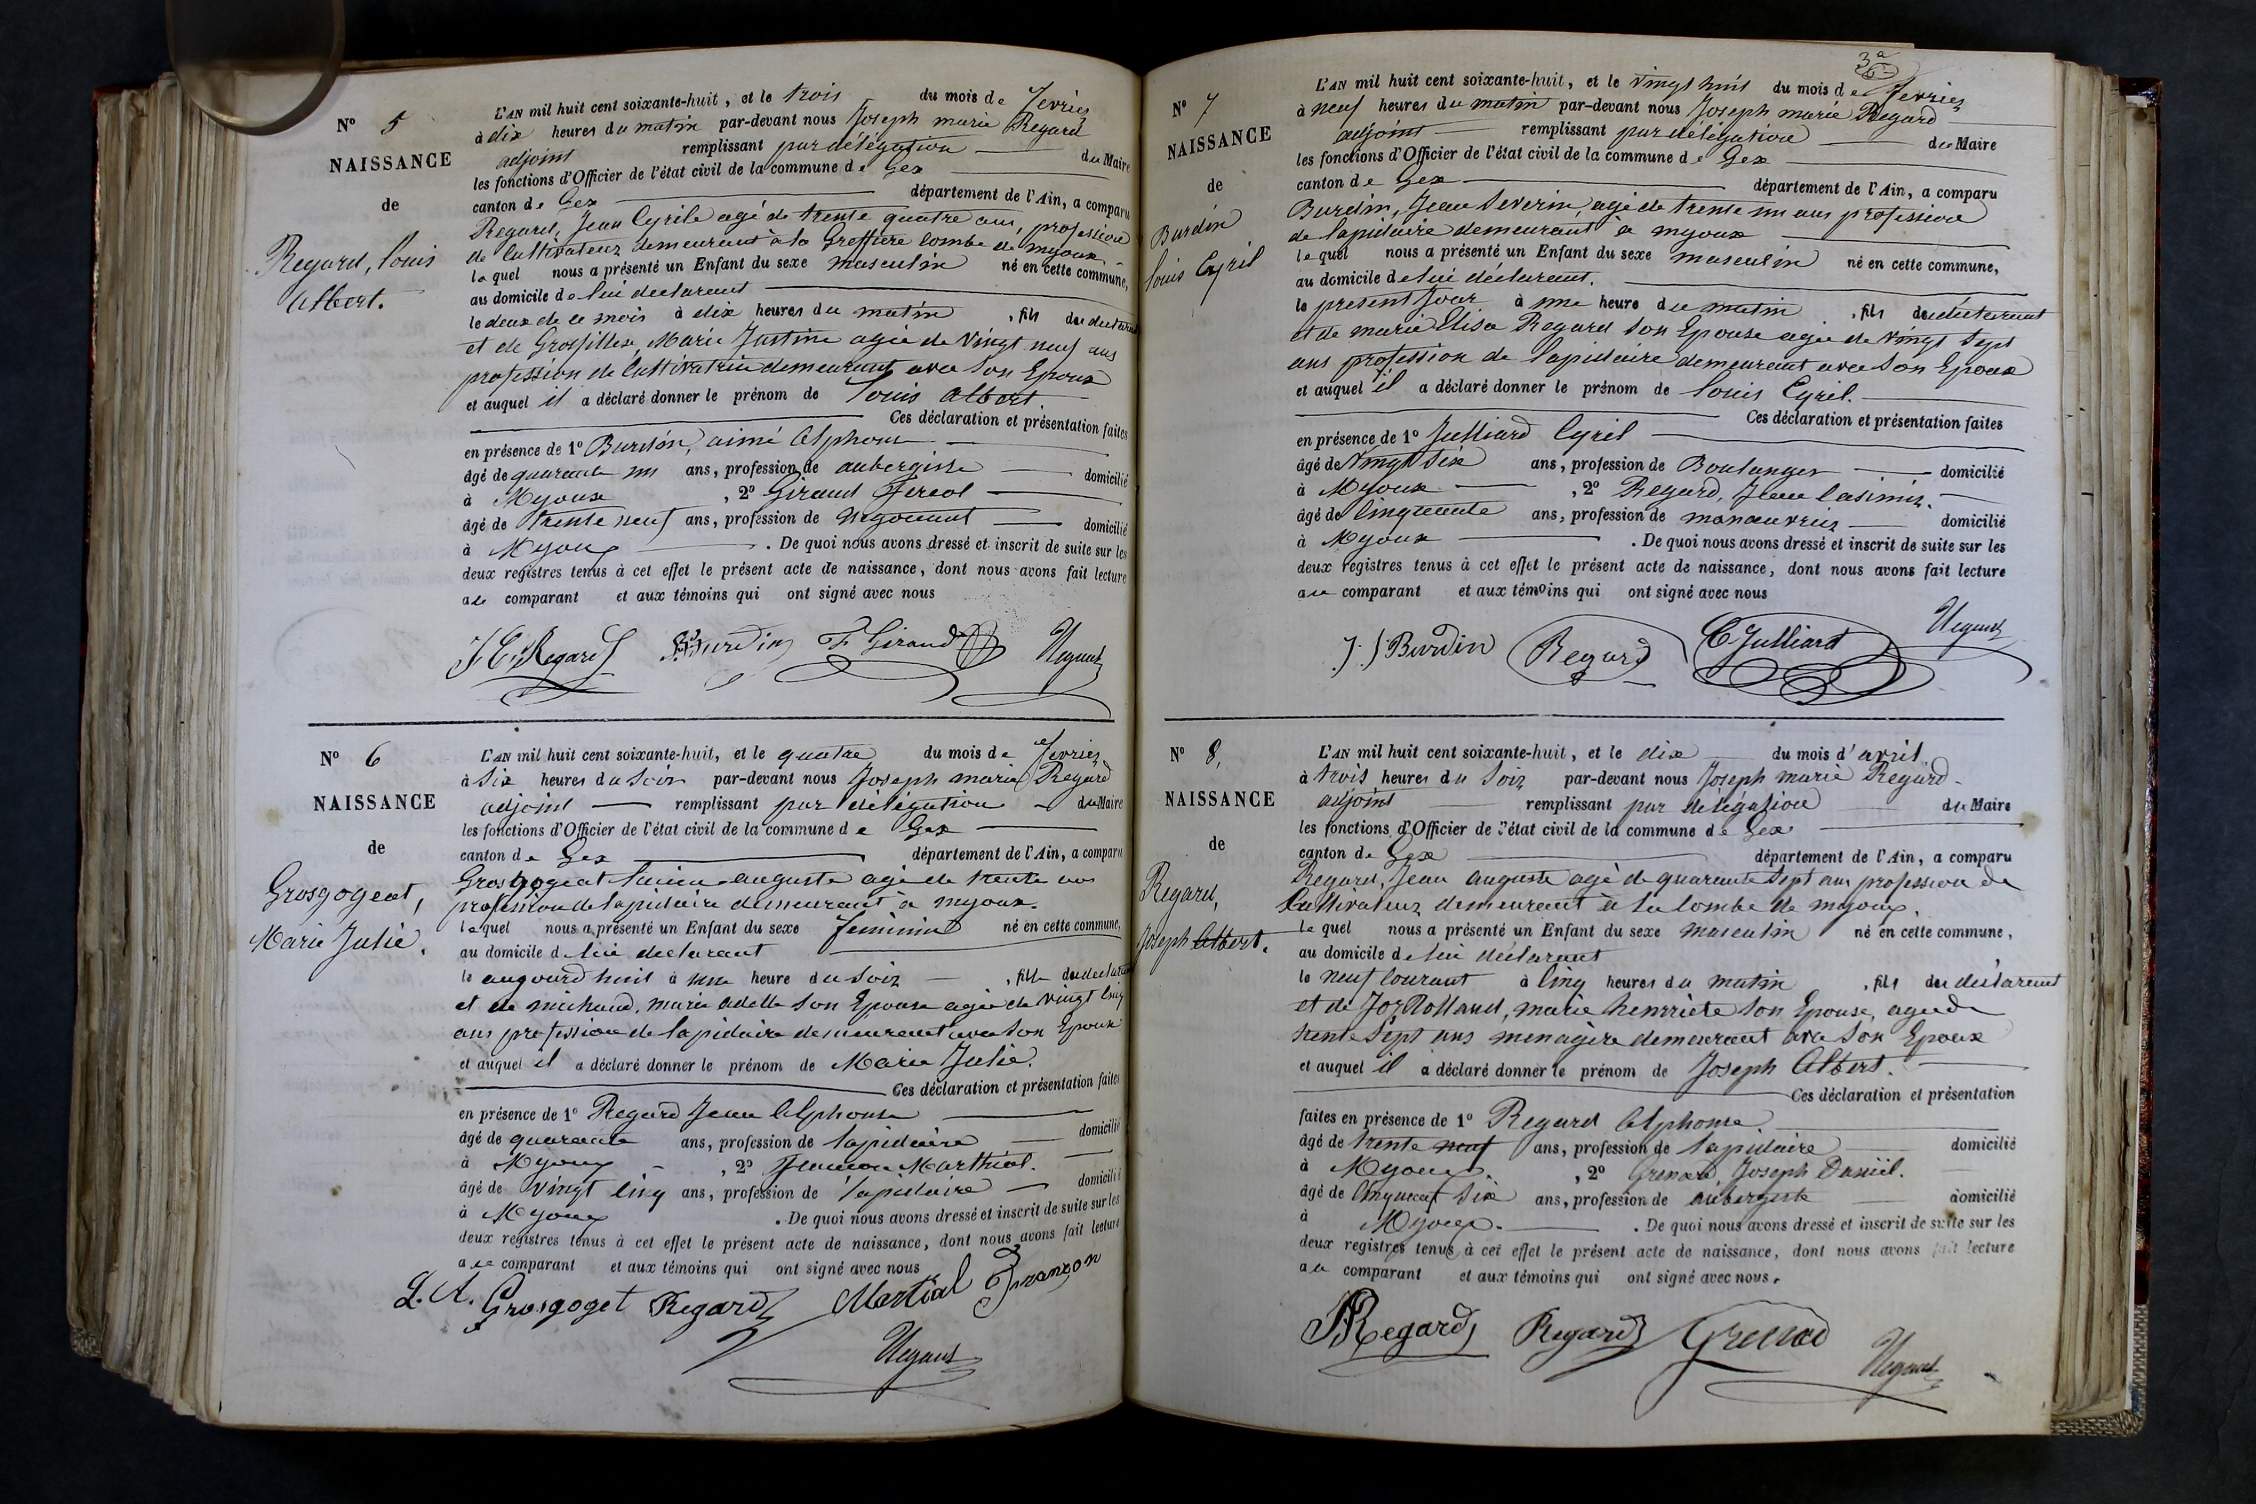 N° 5
NAISSANCE
de
Regard, Louis
Albert.
L'AN mil huit cent soixante-huit, et le trois du mois de Fevrier
à dix heures du matin par-devant nous Joseph marie Regard
adjoint remplissant par délégation du Maire
les fonctions d'Officier de l'état civil de la commune de Gex
canton de Gex département de l'Ain, a comparu
Regard, Jean Cyrile agé de trente quatre ans, profession
de Cultivateur demeurant à la Greffière combe de myoux
lequel nous a présenté un Enfant du sexe masculin né en cette commune,
au domicile de lui declarant
le deux de ce mois à dix heures du matin, fils du declarant
et de Grosfillex, Marie Justine agée de Vingt neuf ans
profession de Cultivatrice demeurant avec son Epoux
et auquel il a déclaré donner le prénom de Louis Albert
Ces déclaration et présentation faites
en présence de 1° Burdin, aimé Alphonse
âgé de quarante un ans, profession de aubergiste domicilié
à Myoux, 2° Giraud Fereol
âgé de trente neuf ans, profession de negociant domicilié
à Myoux. De quoi nous avons dressé et inscrit de suite sur les
deux registres tenus à cet effet le présent acte de naissance, dont nous avons fait lecture
au comparant et aux témoins qui ont signé avec nous
J. C. Regard Burdin F. Giraud Regard
N° 6
NAISSANCE
de
Grosgogeat,
Marie Julie.
L'AN mil huit cent soixante-huit, et le quatre du mois de Fevrier
à Six heures du Soir par-devant nous Joseph marie Regard
adjoint remplissant par délégation du Maire
les fonctions d'Officier de l'état civil de la commune de Gex
canton de Gex département de l'Ain, a comparu
Grosgogeat Lucien auguste agé de trente
profession de lapidaire demeurant à myoux.
lequel nous a présenté un Enfant du sexe feminin né en cette commune,
au domicile de lui declarant
le aujourd'huit à une heure du soir, fille du declarant
et de michaud, marie adelle son Epouse agée de vingt cinq
ans profession de lapidaire demeurant avec son Epoux
et auquel il a déclaré donner le prénom de Marie Julie.
Ces déclaration et présentation faites
en présence de 1° Regard Jean Alphonse
âgé de quarante ans, profession de lapidaire domicilié
à Myoux, 2° Marthial.
âgé de vingt cinq ans, profession de lapidaire domicilié
à Myoux. De quoi nous avons dressé et inscrit de suite sur les
deux registres tenus à cet effet le présent acte de naissance, dont nous avons fait lecture
au comparant et aux témoins qui ont signé avec nous
L. A. Grosgoget Regard Martial
Regard
3a
N° 7
NAISSANCE
de
Burdin
Louis Cyril
L'AN mil huit cent soixante-huit, et le vingt huis du mois de Fevrier
à neuf heures du matin par-devant nous Joseph marie Regard
adjoint remplissant par délégation du Maire
les fonctions d'Officier de l'état civil de la commune de Gex
canton de Gex département de l'Ain, a comparu
Burdin, Jean Severin, agé de trente un ans profession
de lapidaire demeurant à myoux
lequel nous a présenté un Enfant du sexe masculin né en cette commune,
au domicile de lui déclarant.
le present Jour à une heure du matin, fils du déclarant
et de marie Elisa Regard son Epouse agée de vingt sept
ans profession de lapidaire demeurant avec son Epoux
et auquel il a déclaré donner le prénom de Louis Cyril.
Ces déclaration et présentation faites
en présence de 1° Julliard Cyril
âgé de Vingt Six ans, profession de Boulanger domicilié
à Myoux, 2° Regard, Jean Casimir.
âgé de Cinquante ans, profession de manoeuvrier domicilié
à Myoux. De quoi nous avons dressé et inscrit de suite sur les
deux registres tenus à cet effet le présent acte de naissance, dont nous avons fait lecture
au comparant et aux témoins qui ont signé avec nous
J. S Burdin Regard C. Julliard Regard
N° 8,
NAISSANCE
de
Regard,
Joseph Albert.
L'AN mil huit cent soixante-huit, et le dix du mois d'avril
à trois heures du Soir par-devant nous Joseph marie Regard
adjoint remplissant par delégation du Maire
les fonctions d'Officier de l'état civil de la commune de Gex
canton de Gex département de l'Ain, a comparu
Regard, Jean auguste agé de quarante sept ans profession de
Cultivateur demeurant à la Combe de myoux.
lequel nous a présenté un Enfant du sexe masculin né en cette commune,
au domicile de lui déclarant
le neuf courant à cinq heures du matin, fils du déclarant
et de Joz Rolland, marie henriete son Epouse, agée de
trente sept ans menagère demeurant avec son Epoux
et auquel il a déclaré donner le prénom de Joseph Albert.
Ces déclaration et présentation
faites en présence de 1° Regard Alphonse
âgé de trente neuf ans, profession de lapidaire domicilié
à Myoux., 2° Grenard, Joseph Daniel.
âgé de Cinquante six ans, profession de aubergiste domicilié
à Myoux. De quoi nous avons dressé et inscrit de suite sur les
deux registres tenus à cet effet le présent acte de naissance, dont nous avons fait lecture
au comparant et aux témoins qui ont signé avec nous.
Regard Regard Grenard
Regard